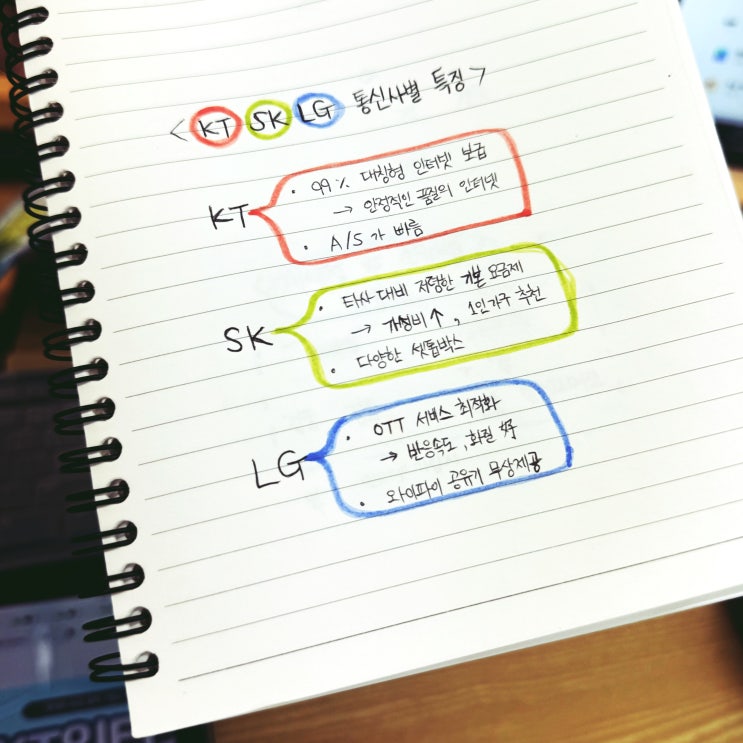 < KT SK LG 통신사별 특징 >
KT
• 99% 대칭형 인터넷 보급
→ 안정적인 품질의 인터넷
• A/S가 빠름
SK
• 타사 대비 저렴한 기본 요금제
→ 가성비↑, 1인가구 추천
• 다양한 셋톱박스
LG
• OTT 서비스 최적화
→ 반응속도, 화질 好
• 와이파이 공유기 무상제공